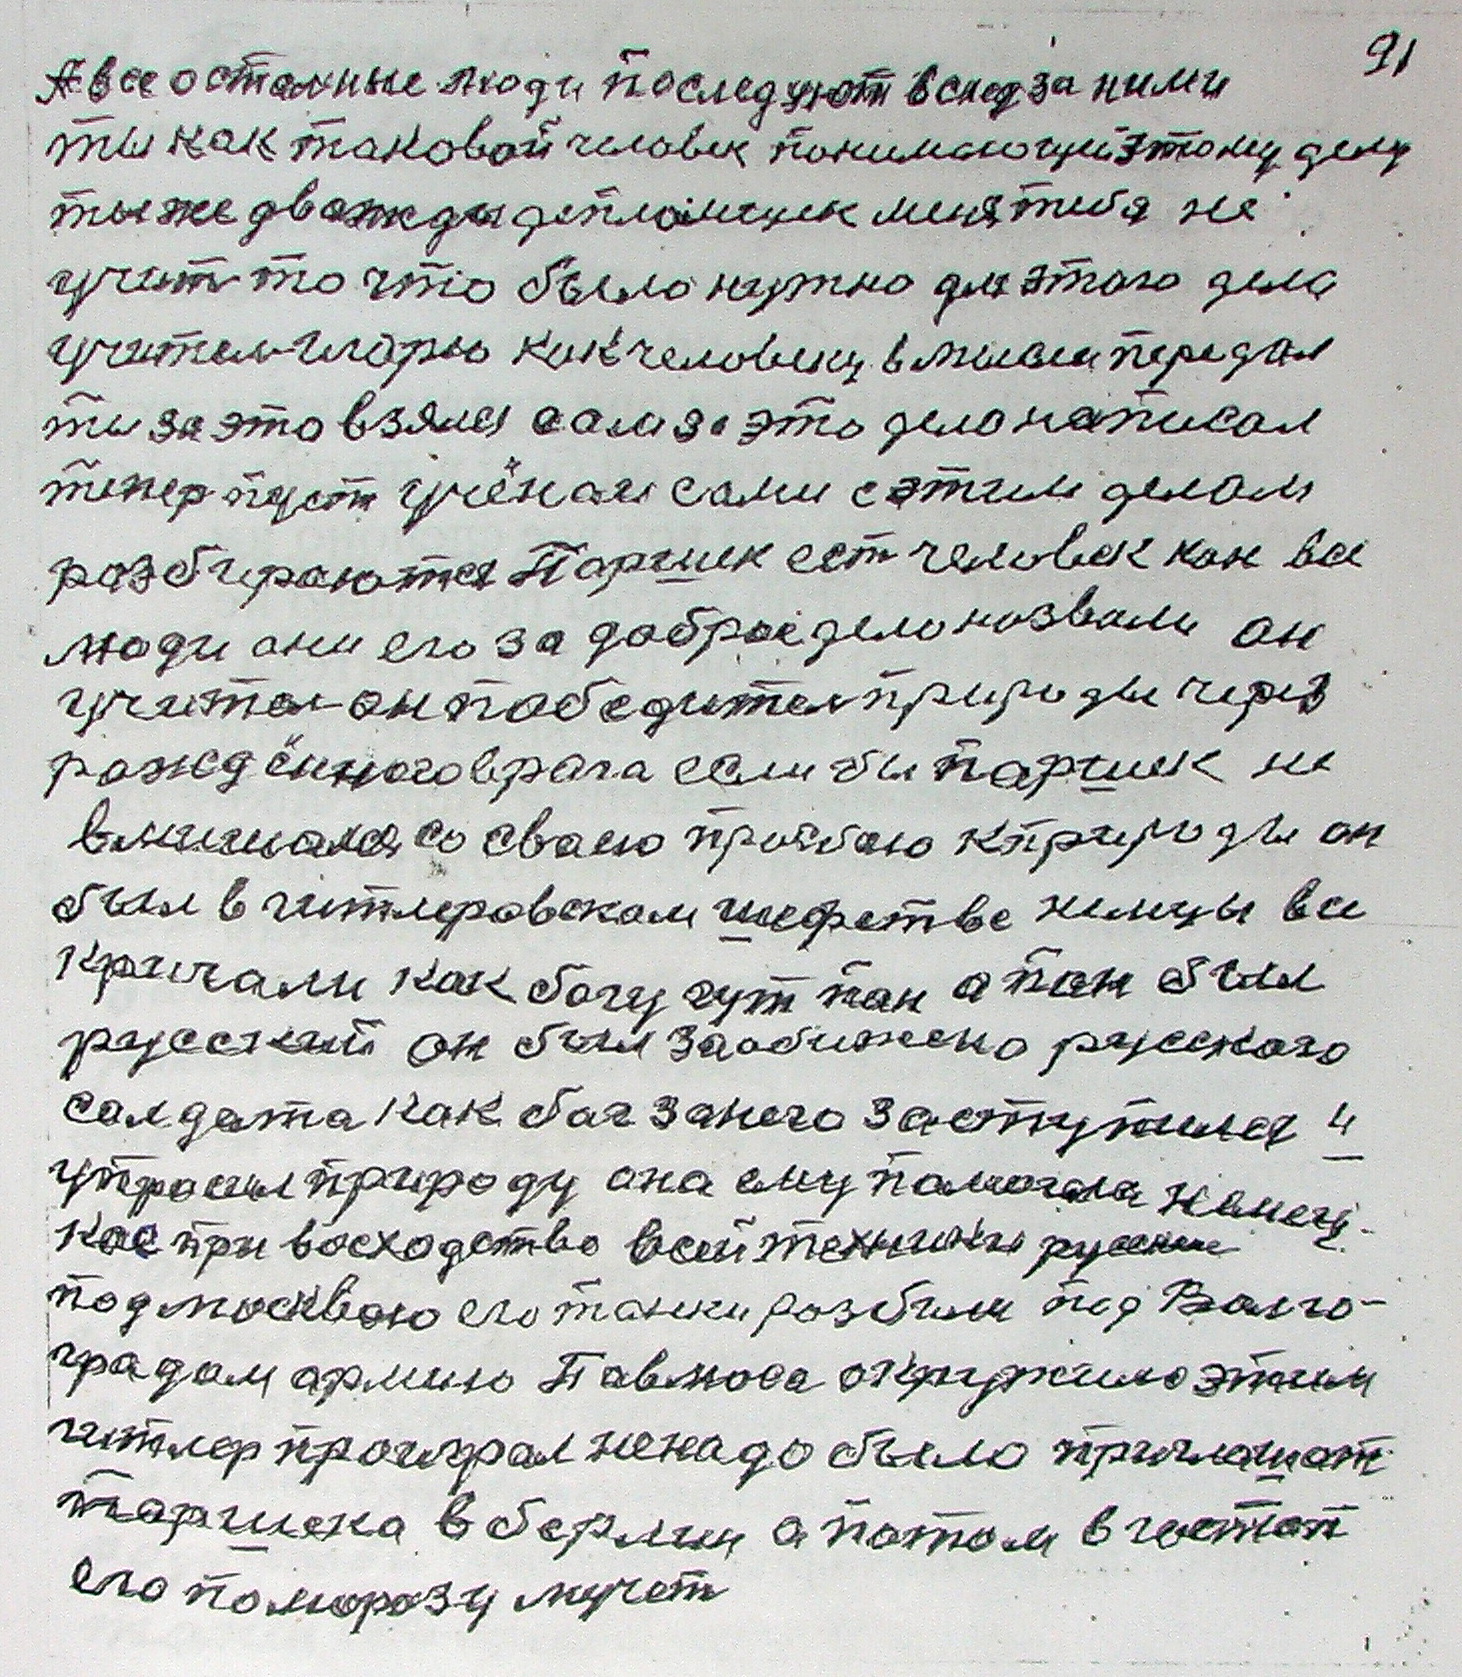 91
А все остальные люди последуют вслед за ними
ты как таковой человек понимающий этому делу
ты же дважды дипломщик меня тебя не
учит то что было нужно для этого дела
учител Иларю как человеку в мысли передал
ты за это взялся сам за это дело написал
тепер пуст учёнаи сами с этим делам
разбираются Паршек ест человек как все
люди они его за доброе дело назвали он
учител он победител природы через
рождённого врага если бы паршек не
вмишался со сваею прозбаю к природы он
был в гитлеровскам шефстве немцы все
кричали как богу гут пан а пан был
русский он был за обижено русского
салдата как бог за него заступился и
упросил природу она ему памогла немец-
кое при восходство всей техники русские
под москвою его танки разбили под Волго-
градам армию Павлюса окружило этим
гитлер проиграл ненадо было приглашат
паршека в берлин а потом в гестап
его по морозу мучет